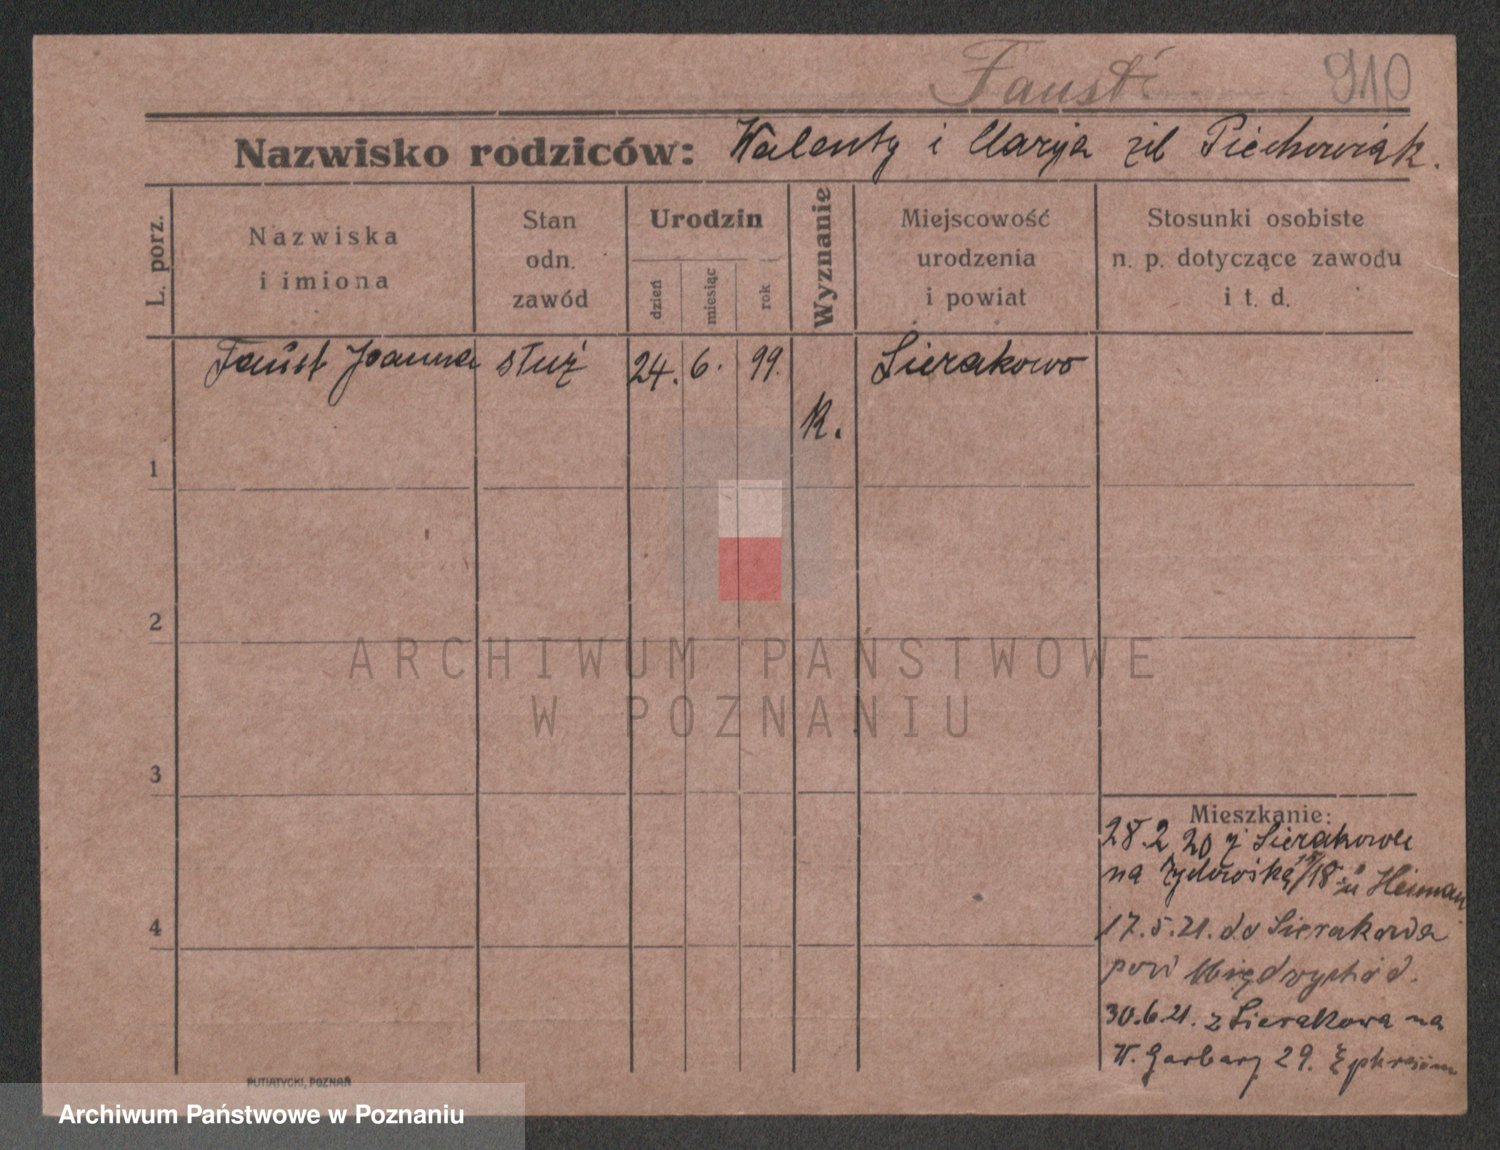 Faust 910
Nazwisko rodziców: Walenty i Marya Piechowiak.
L. porz.
Nazwiska
i imiona
Stan
odn.
zawód
Urodzin
dzień
miesiąc
rok
Wyznanie
Miejscowość
urodzenia
i powiat
Stosunki osobiste
n. p. dotyczące zawodu
i t. d.
Faust Joanna służ 24. 6. 99. Sierakowo
K.
1
2
ARCHIWUM PAŃSTWOWE
W POZNANIU
3
Mieszkanie:
28.2 20 z Sierakowa
na Żydowską 15/18 Heiman
17.5.21. do Sierakowa
pow Międzychód.
4
30.6.21. z Sierakowa na
W. Garbary 29.
PUTIATYCKI, POZNAŃ
Archiwum Państwowe w Poznaniu